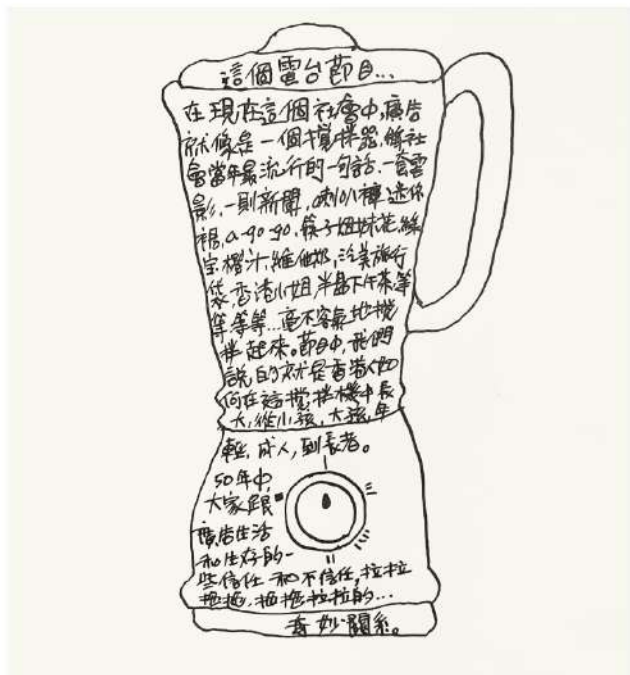 這個電台節目...
在現在這個社會中,廣告
就像是一個攪拌器,將社
會當年最流行的一句話,一套電
影,一則新聞,喇叭褲,迷你
裙,a-go-go,筷子姐妹花,綠
宝橙汁,維他奶,汽美旅行
袋,香港小姐,半島下午茶,等
等等等...毫不客氣地攪
拌起來。節目中,我們
說的就是香港人如
何在這攪拌機中長
大,從小孩,大孩,年
輕,成人,到長者。
50年中,
大家跟
廣告生活
和生好的一
些信任和不信任,拉拉
扯扯,拉拉的...
奇妙關系。